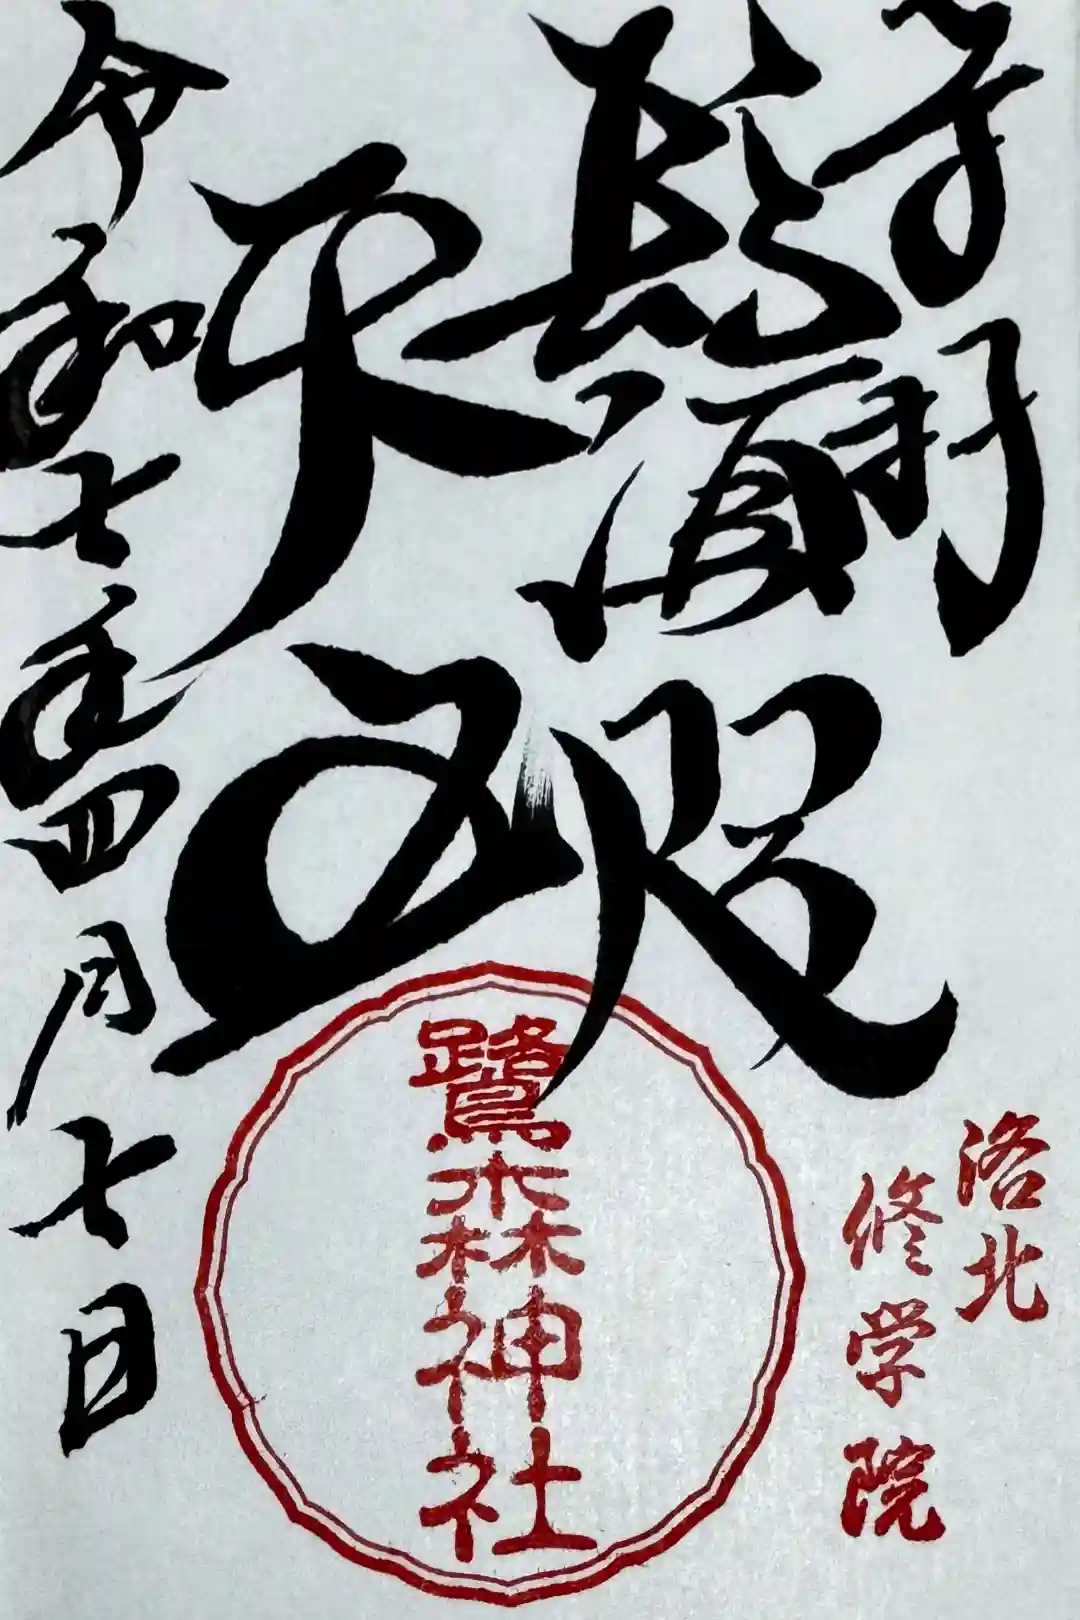 奉拝
鬚咫
天王
令和七年四月七日
鷺森神社
洛北
修学院